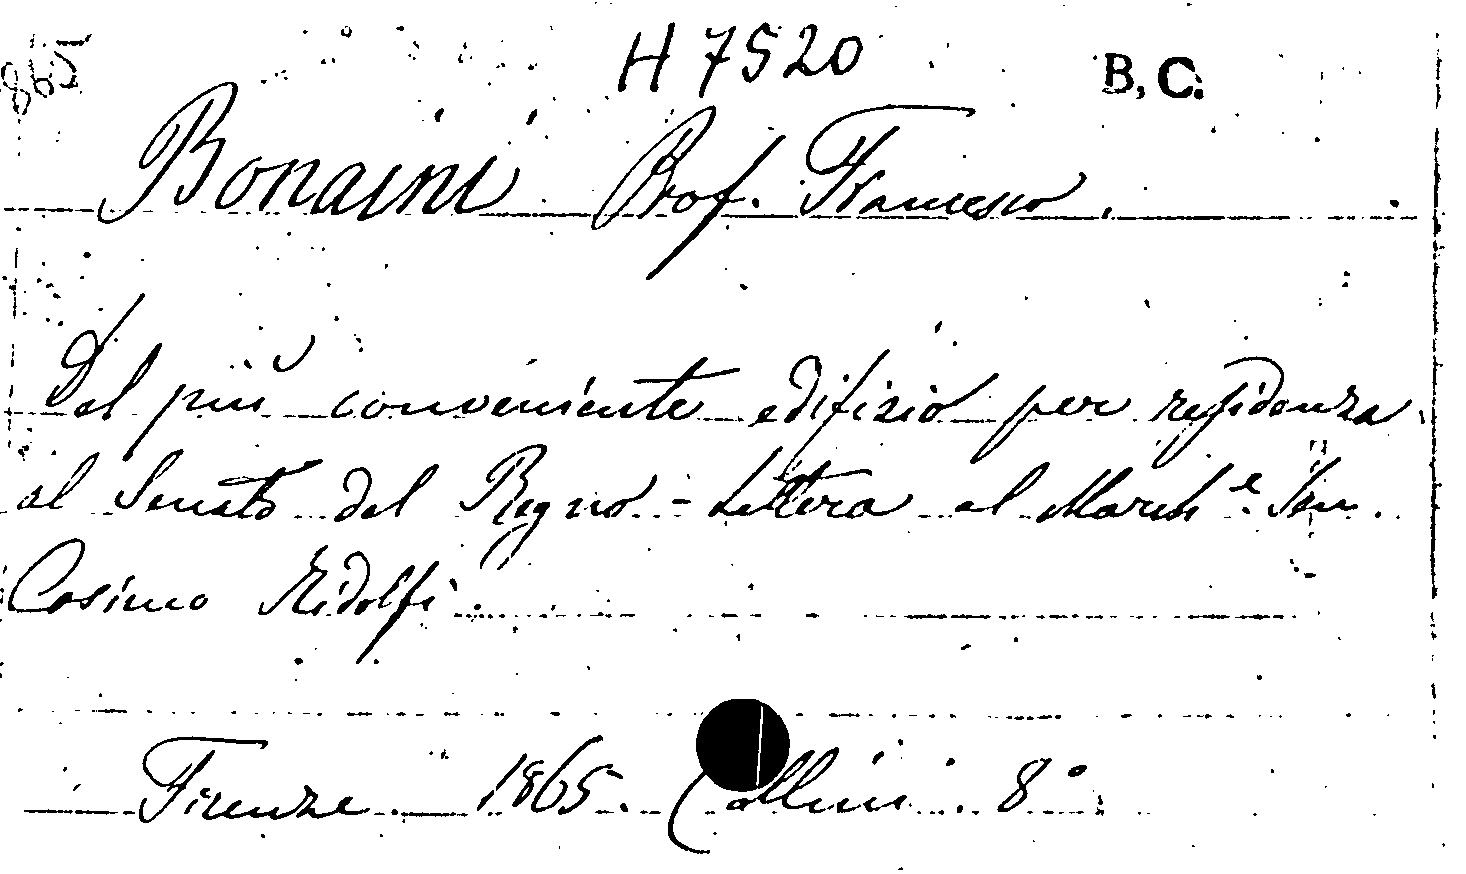 865
H 7520
B. C.
Bonaini Prof. Francesco.
Del più conveniente edifizio per residenza
al Senato del Regno - Lettera al March.e Sen.
Cosimo Ridolfi.
Firenze. 1865. Cellini. 8°